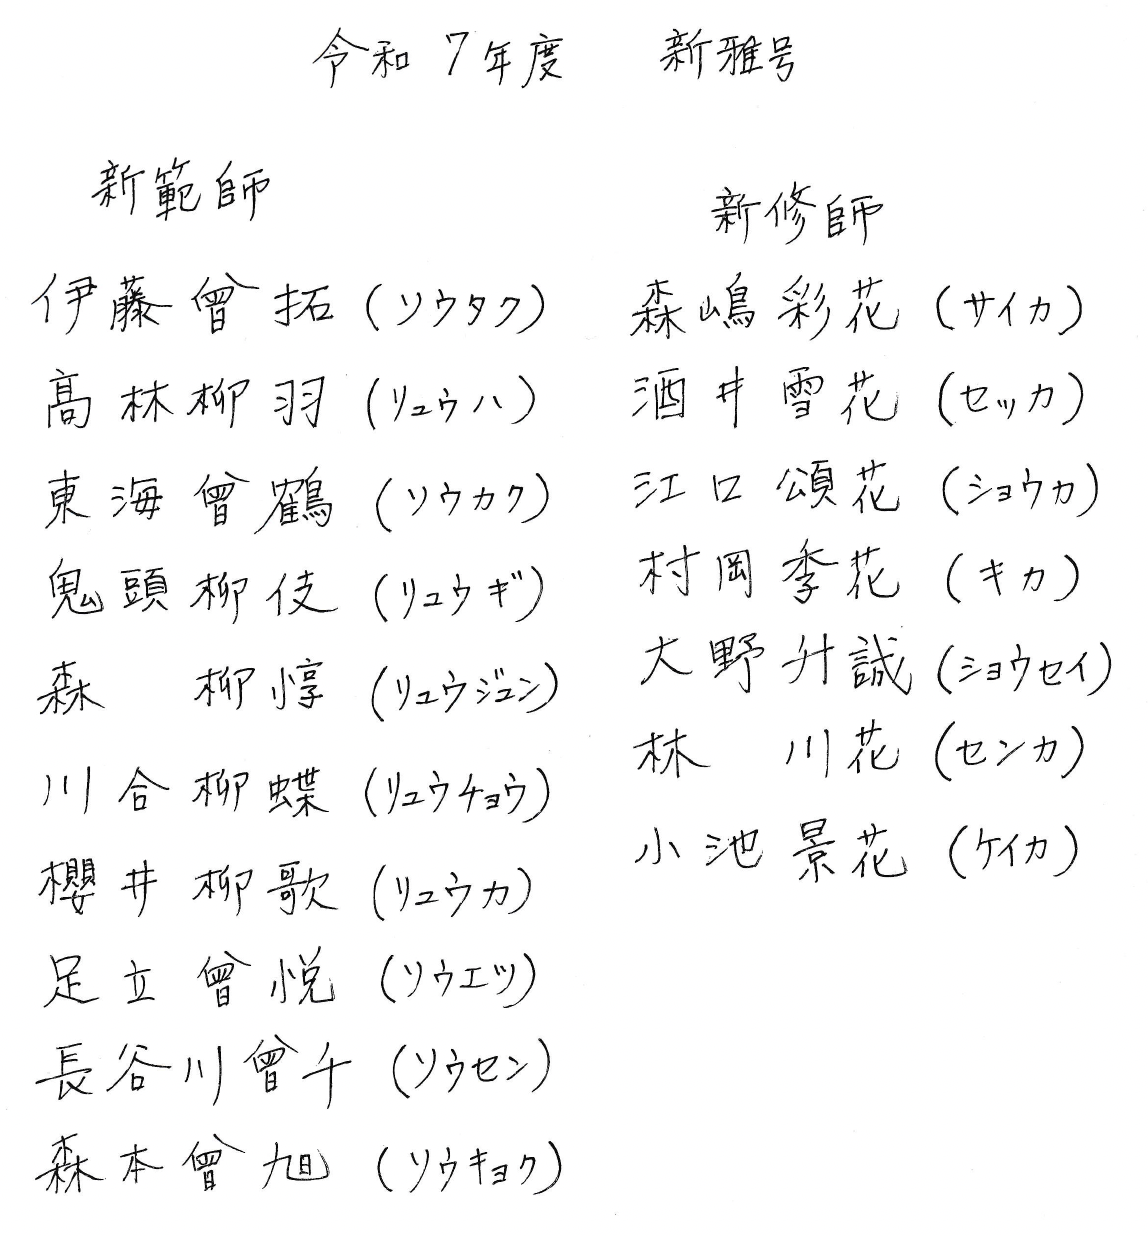 令和7年度 新雅号
新範師
伊藤曾拓(ソウタク)
髙林柳羽(リュウハ)
東海曾鶴(ソウカク)
鬼頭柳伎(リュウギ)
森 柳惇(リュウジュン)
川合柳蝶(リュウチョウ)
櫻井柳歌(リュウカ)
足立曾悦(ソウエツ)
長谷川曾千(ソウセン)
森本曾旭(ソウキョク)
新修師
森嶋彩花(サイカ)
酒井雪花(セッカ)
江口頌花(ショウカ)
村岡季花(キカ)
大野升誠(ショウセイ)
林 川花(センカ)
小池景花(ケイカ)